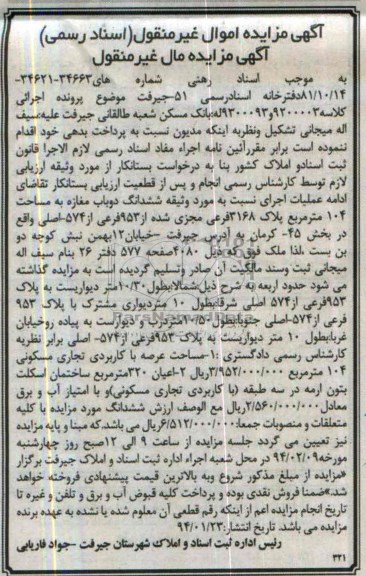 آگهی مزایده اموال غیرمنقول(اسناد رسمی)
آگهی مزایده مال غیرمنقول
به موجب اسناد رهنی شماره های۳۴۶۶۳-۳۴۶۲۱-
۸۱/۱۰/۱۴دفترخانه اسنادرسمی ۵۱-جیرفت موضوع پرونده اجرائی
کلاسه۹۲۰۰۰۰۳و۹۳۰۰۰۹۳له:بانک مسکن شعبه طالقانی جیرفت علیه:سیف
اله میجانی تشکیل ونظربه اینکه مدیون نسبت به پرداخت بدهی خود اقدام
ننموده است برابر مقررآئین نامه اجراء مفاد اسناد رسمی لازم الاجرا قانون
ثبت اسنادو املاک کشور بنا به درخواست بستانکار از مورد وثیقه ارزیابی
لازم توسط کارشناس رسمی انجام و پس از قطعیت ارزیابی بستانکار تقاضای
ادامه عملیات اجرای نسبت به مورد وثیقه ششدانگ دوباب مغازه به مساحت
۱۰۴ مترمربع پلاک ۳۱۶۸فرعی مجزی شده از۹۵۳فرعی از۵۷۴-اصلی واقع
در بخش ۴۵- کرمان به آدرس جیرفت -خیابان۱۲بهمن نبش کوچه دو
بن بست ،لذا ملک فوق که ذیل ۴۰۸۰صفحه ۵۷۷ دفتر ۲۶ بنام سیف اله
میجانی ثبت وسند مالکیت آن صادر وتسلیم گردیده است به مزایده گذاشته
می شود حدود اربعه به شرح ذیل:شمالا:بطول ۱۰/۳۰متر دیواریست به پلاک
۹۵۳فرعی از۵۷۴ اصلی شرقا:بطول ۱۰ متردیواری مشترک با پلاک ۹۵۳
فرعی از۵۷۴-اصلی جنوبا:بطول۱۰/۵۰متردرب و دیواریست به پیاده روخیابان
غربا:بطول ۱۰ متر دیواریست به پلاک ۹۵۳فرعی از۵۷۴- اصلی برابر نظریه
کارشناس رسمی دادگستری :۱-مساحت عرصه با کاربردی تجاری مسکونی
۱۰۴ مترمربع ۳/۹۵۲/۰۰۰/۰۰۰ریال ۲-اعیان ۳۲۰مترمربع ساختمان اسکلت
بتون ارمه در سه طبقه (با کاربردی تجاری مسکونی)و با امتیاز آب و برق
معادل۲/۵۶۰/۰۰۰/۰۰۰ریال مع الوصف ارزش ششدانگ مورد مزایده با کلیه
متعلقات و منصوبات جمعا:۶/۵۱۲/۰۰۰/۰۰۰ریال می باشد.که مبنا و پایه مزایده
نیز تعیین می گردد جلسه مزایده از ساعت ۹ الی ۱۲صبح روز چهارشنبه
مورخه۹۴/۰۲/۰۹ در محل شعبه اجراء اداره ثبت اسناد و املاک جیرفت برگزار
«مزایده از مبلغ مذکور شروع وبه بالاترین قیمت پیشنهادی فروخته خواهد
شد.»ضمنا فروش نقدی بوده و پرداخت کلیه قبوض آب و برق و تلفن و غیره تا
تاریخ انجام مزایده اعم از اینکه رقم قطعی آن معلوم شده یا نشده به عهده برنده
مزایده می باشد. تاریخ انتشار:۹۴/۰۱/۲۳
رئیس اداره ثبت اسناد و املاک شهرستان جیرفت -جواد فاریابی
۳۲۱